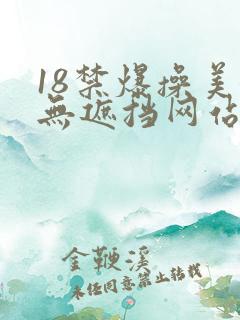 18禁爆操美
無遮挡网站
金鞭溪
未经同意禁止转载